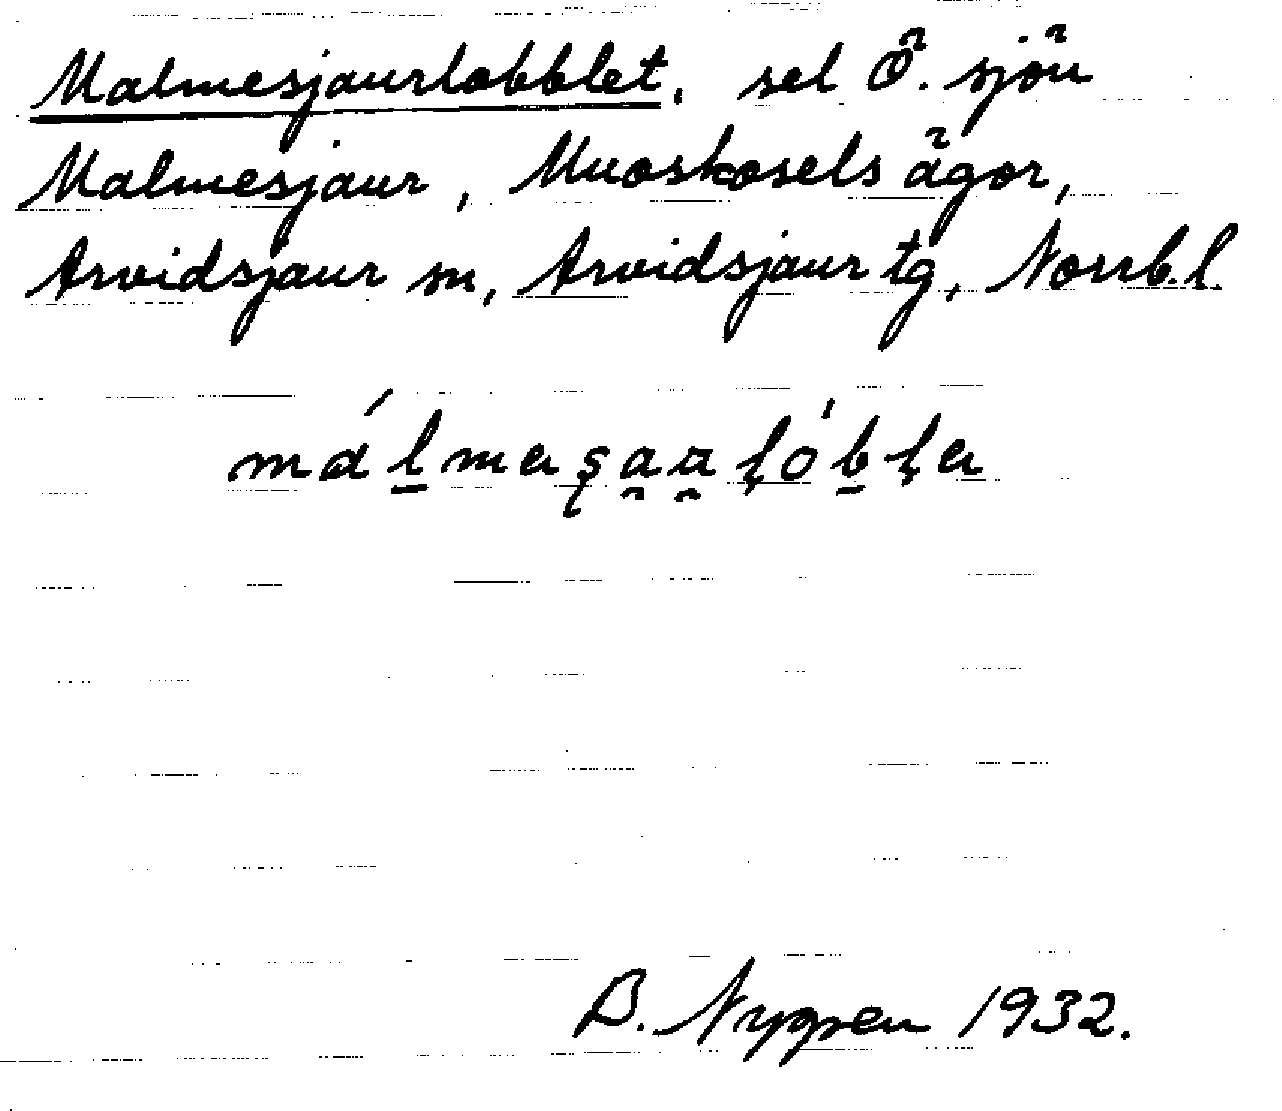 Malmesjaurlobblet, sel Ö. sjön
Malmesjaur, Muoskosels ägor,
Arvidsjaur sn, Arvidsjaur tg, Norrb.l.
B. Nygren 1932.